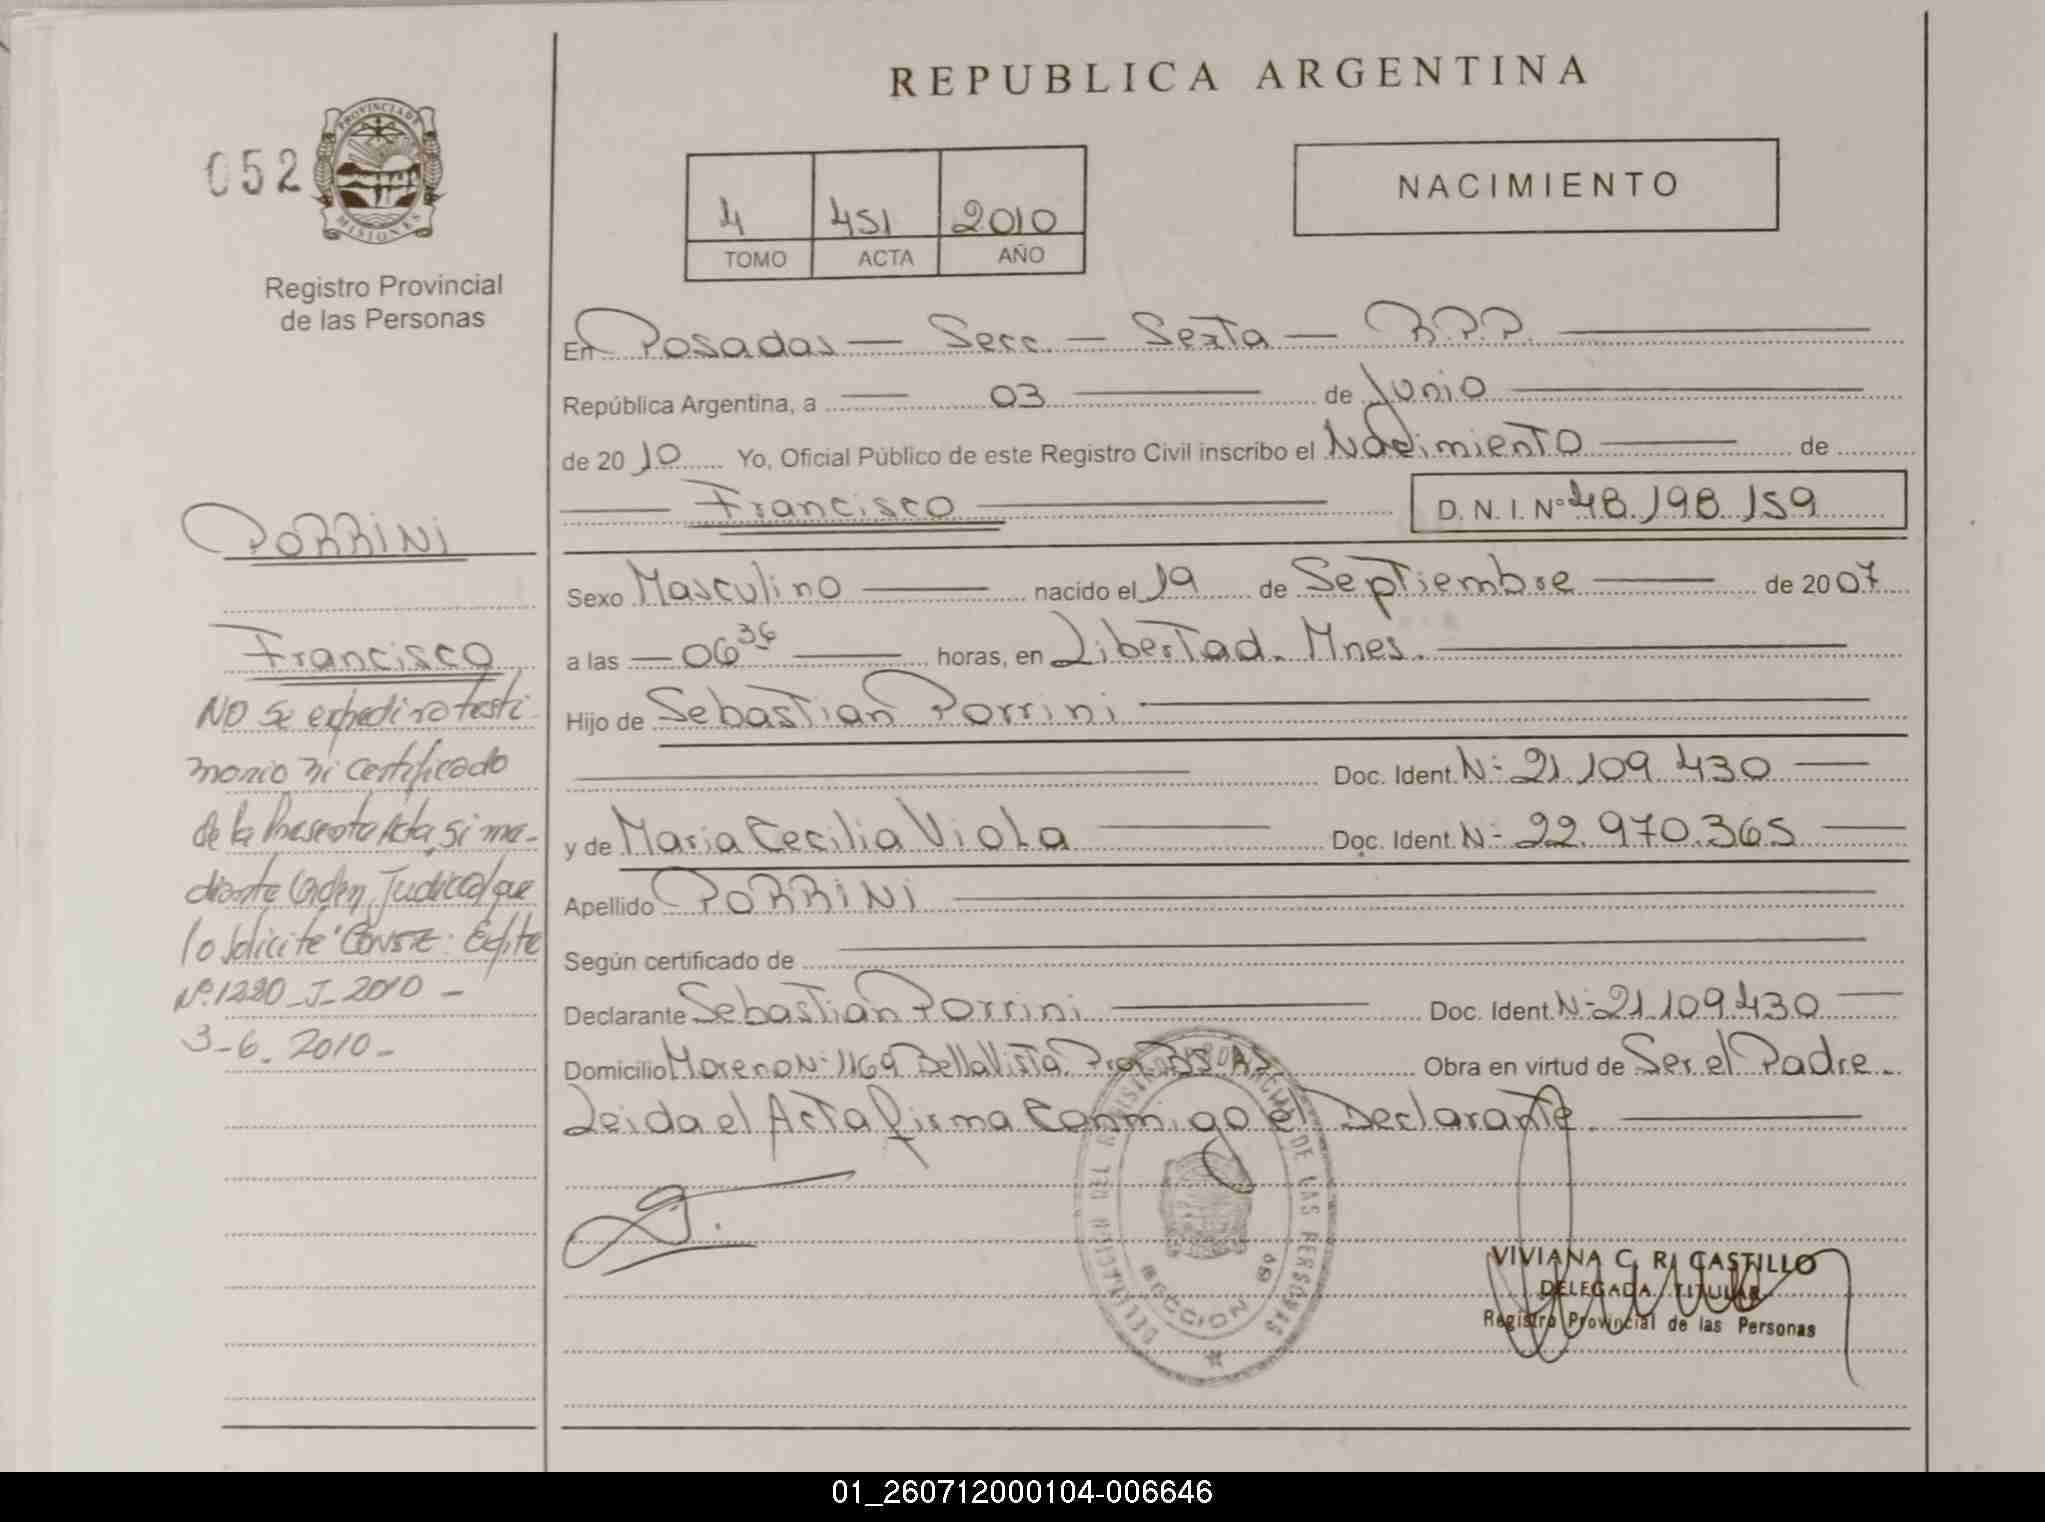 REPUBLICA ARGENTINA
052
PROVINCIA DE
MISIONES
Registro Provincial
de las Personas
4 451 2010
TOMO ACTA AÑO
NACIMIENTO
En Posadas — Secc. — Sexta — R.P.P.
República Argentina, a — 03 — de Junio
de 2010 Yo, Oficial Público de este Registro Civil inscribo el Nacimiento — de
— Francisco — D. N. I. Nº 48.198.159
PORRINI
Sexo Masculino — nacido el 19 de Septiembre — de 2007
Francisco
a las — 06 36 — horas, en Libertad. Mnes.
Hijo de Sebastian Porrini
Doc. Ident. Nº 21.109.430 —
y de Maria Cecilia Viola — Doc. Ident. Nº 22.970.365 —
Apellido PORRINI
Según certificado de
Declarante Sebastian Porrini — Doc. Ident. Nº 21.109.430 —
Domicilio Moreno Nº 1169 Bella Vista. Prov. BS. AS. Obra en virtud de Ser el Padre.
Leida el Acta firma Conmigo el Declarante.
No se expedira testi
monio ni certificado
de la Presente Acta, si me-
diante Orden Judicial que
lo solicite
Nº 1220_J_2010 -
3-6-2010-
DELEGACION DEL REGISTRO PROVINCIAL DE LAS PERSONAS
SECCION 6ª
VIVIANA C. R. CASTILLO
DELEGADA TITULAR
Registro Provincial de las Personas
01_260712000104-006646